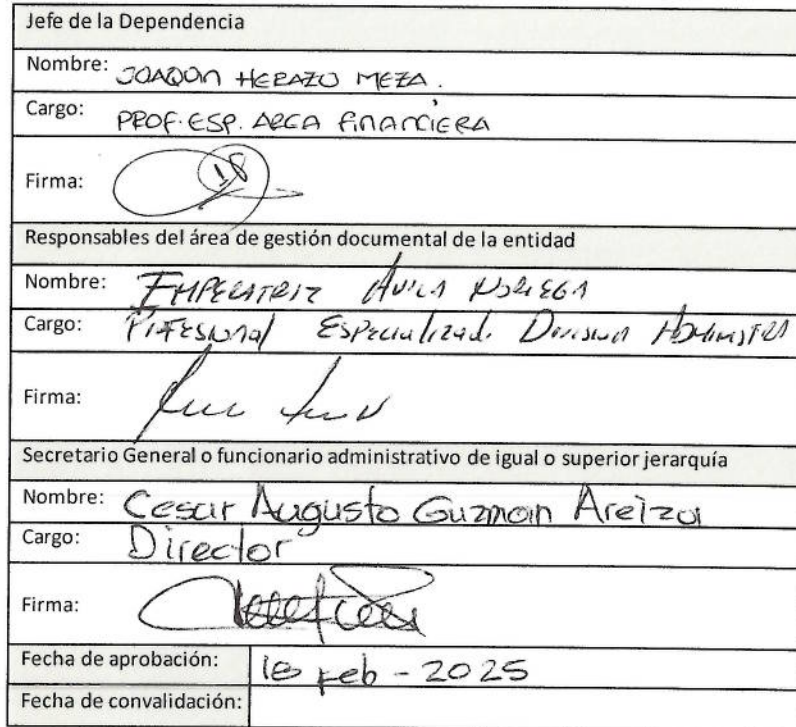 Jefe de la Dependencia
Nombre: JOAQUIN HERAZO MEZA.
Cargo: PROF. ESP. AREA FINANCIERA
Firma:
Responsables del área de gestión documental de la entidad
Nombre: EMPERATRIZ AVILA NORIEGA
Cargo: Profesional Especializado Division ADMINISTRA
Firma:
Secretario General o funcionario administrativo de igual o superior jerarquía
Nombre: Cesar Augusto Guzman Areiza
Cargo: Director
Firma:
Fecha de aprobación: 18 Feb - 2025
Fecha de convalidación: